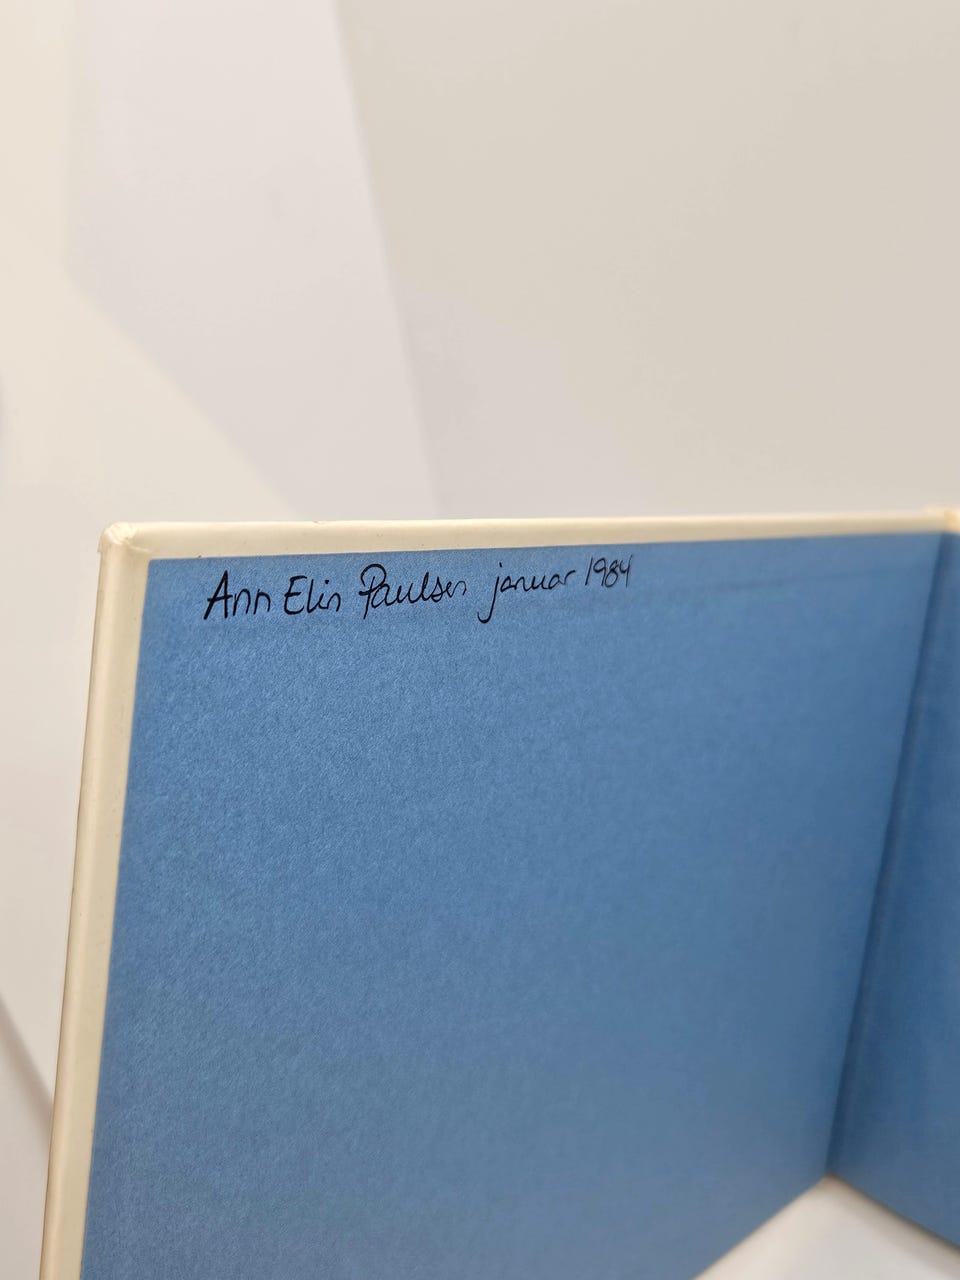 Ann Elin Paulsen januar 1984